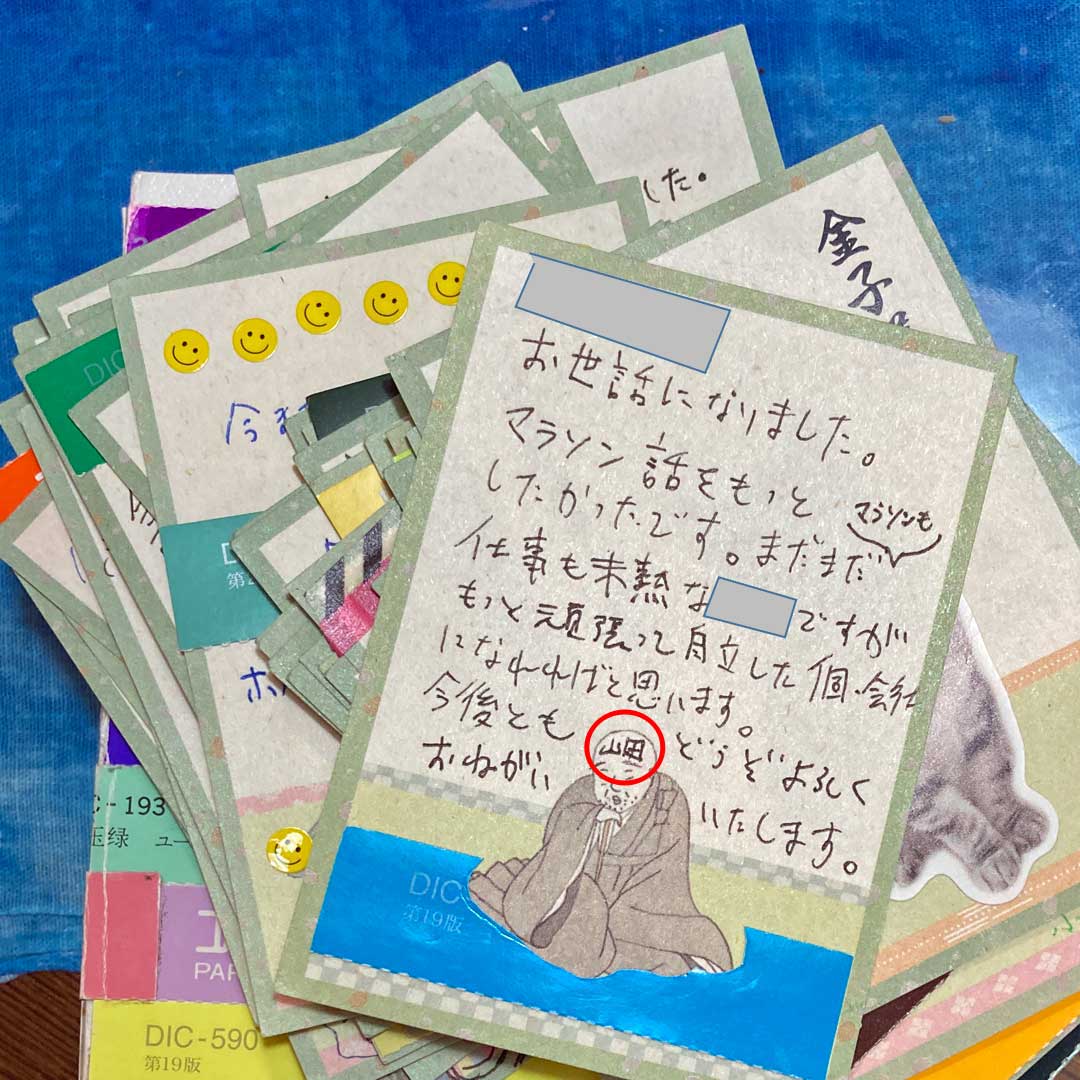 した。
金
子
今ま
お世話になりました。
マラソン話をもっと
したかったです。まだまだ
マラソンも
仕事も未熟な
ですが
もっと頑張って自立した個・会社
になれればと思います。
今後とも
どうぞよろしく
おねがい
いたします。
山田
DIC
DIC
第19版
C-193
玉绿 ユー
PAR
DIC-590
第19版